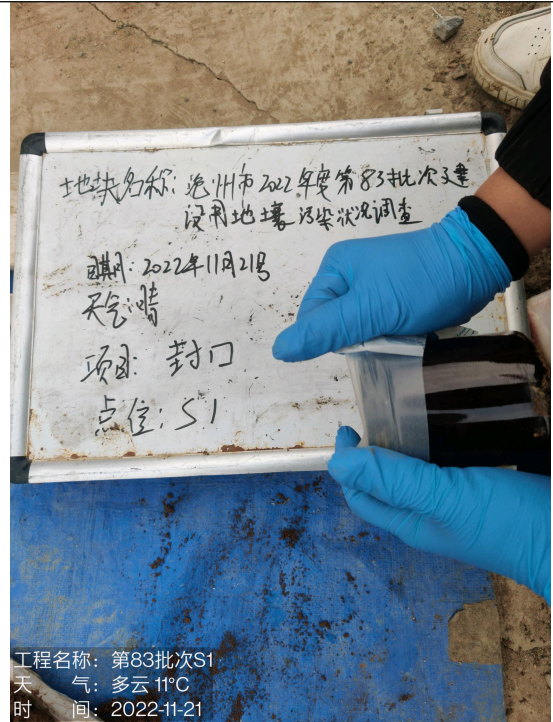 地块名称：沧州市2022年度第83批次建
设用地土壤污染状况调查
日期：2022年11月21号
天气：晴
项目：封口
点位：S1
工程名称：第83批次S1
天　　气：多云 11℃
时　　间：2022-11-21